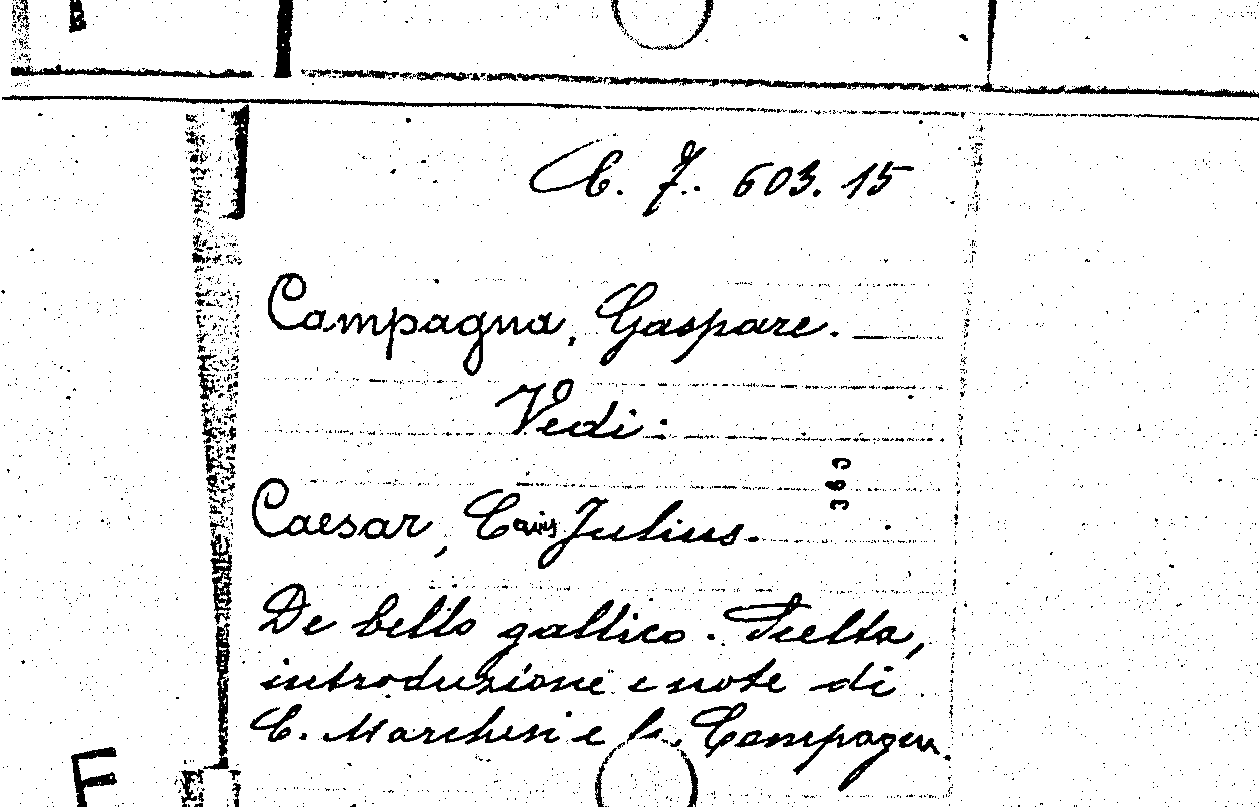 C. 7. 603. 15
Campagna, Gaspare.
Vedi:
Caesar, Caius Julius.
De bello gallico. Scelta,
introduzione e note di
C. Marchesi e G. Campagna.